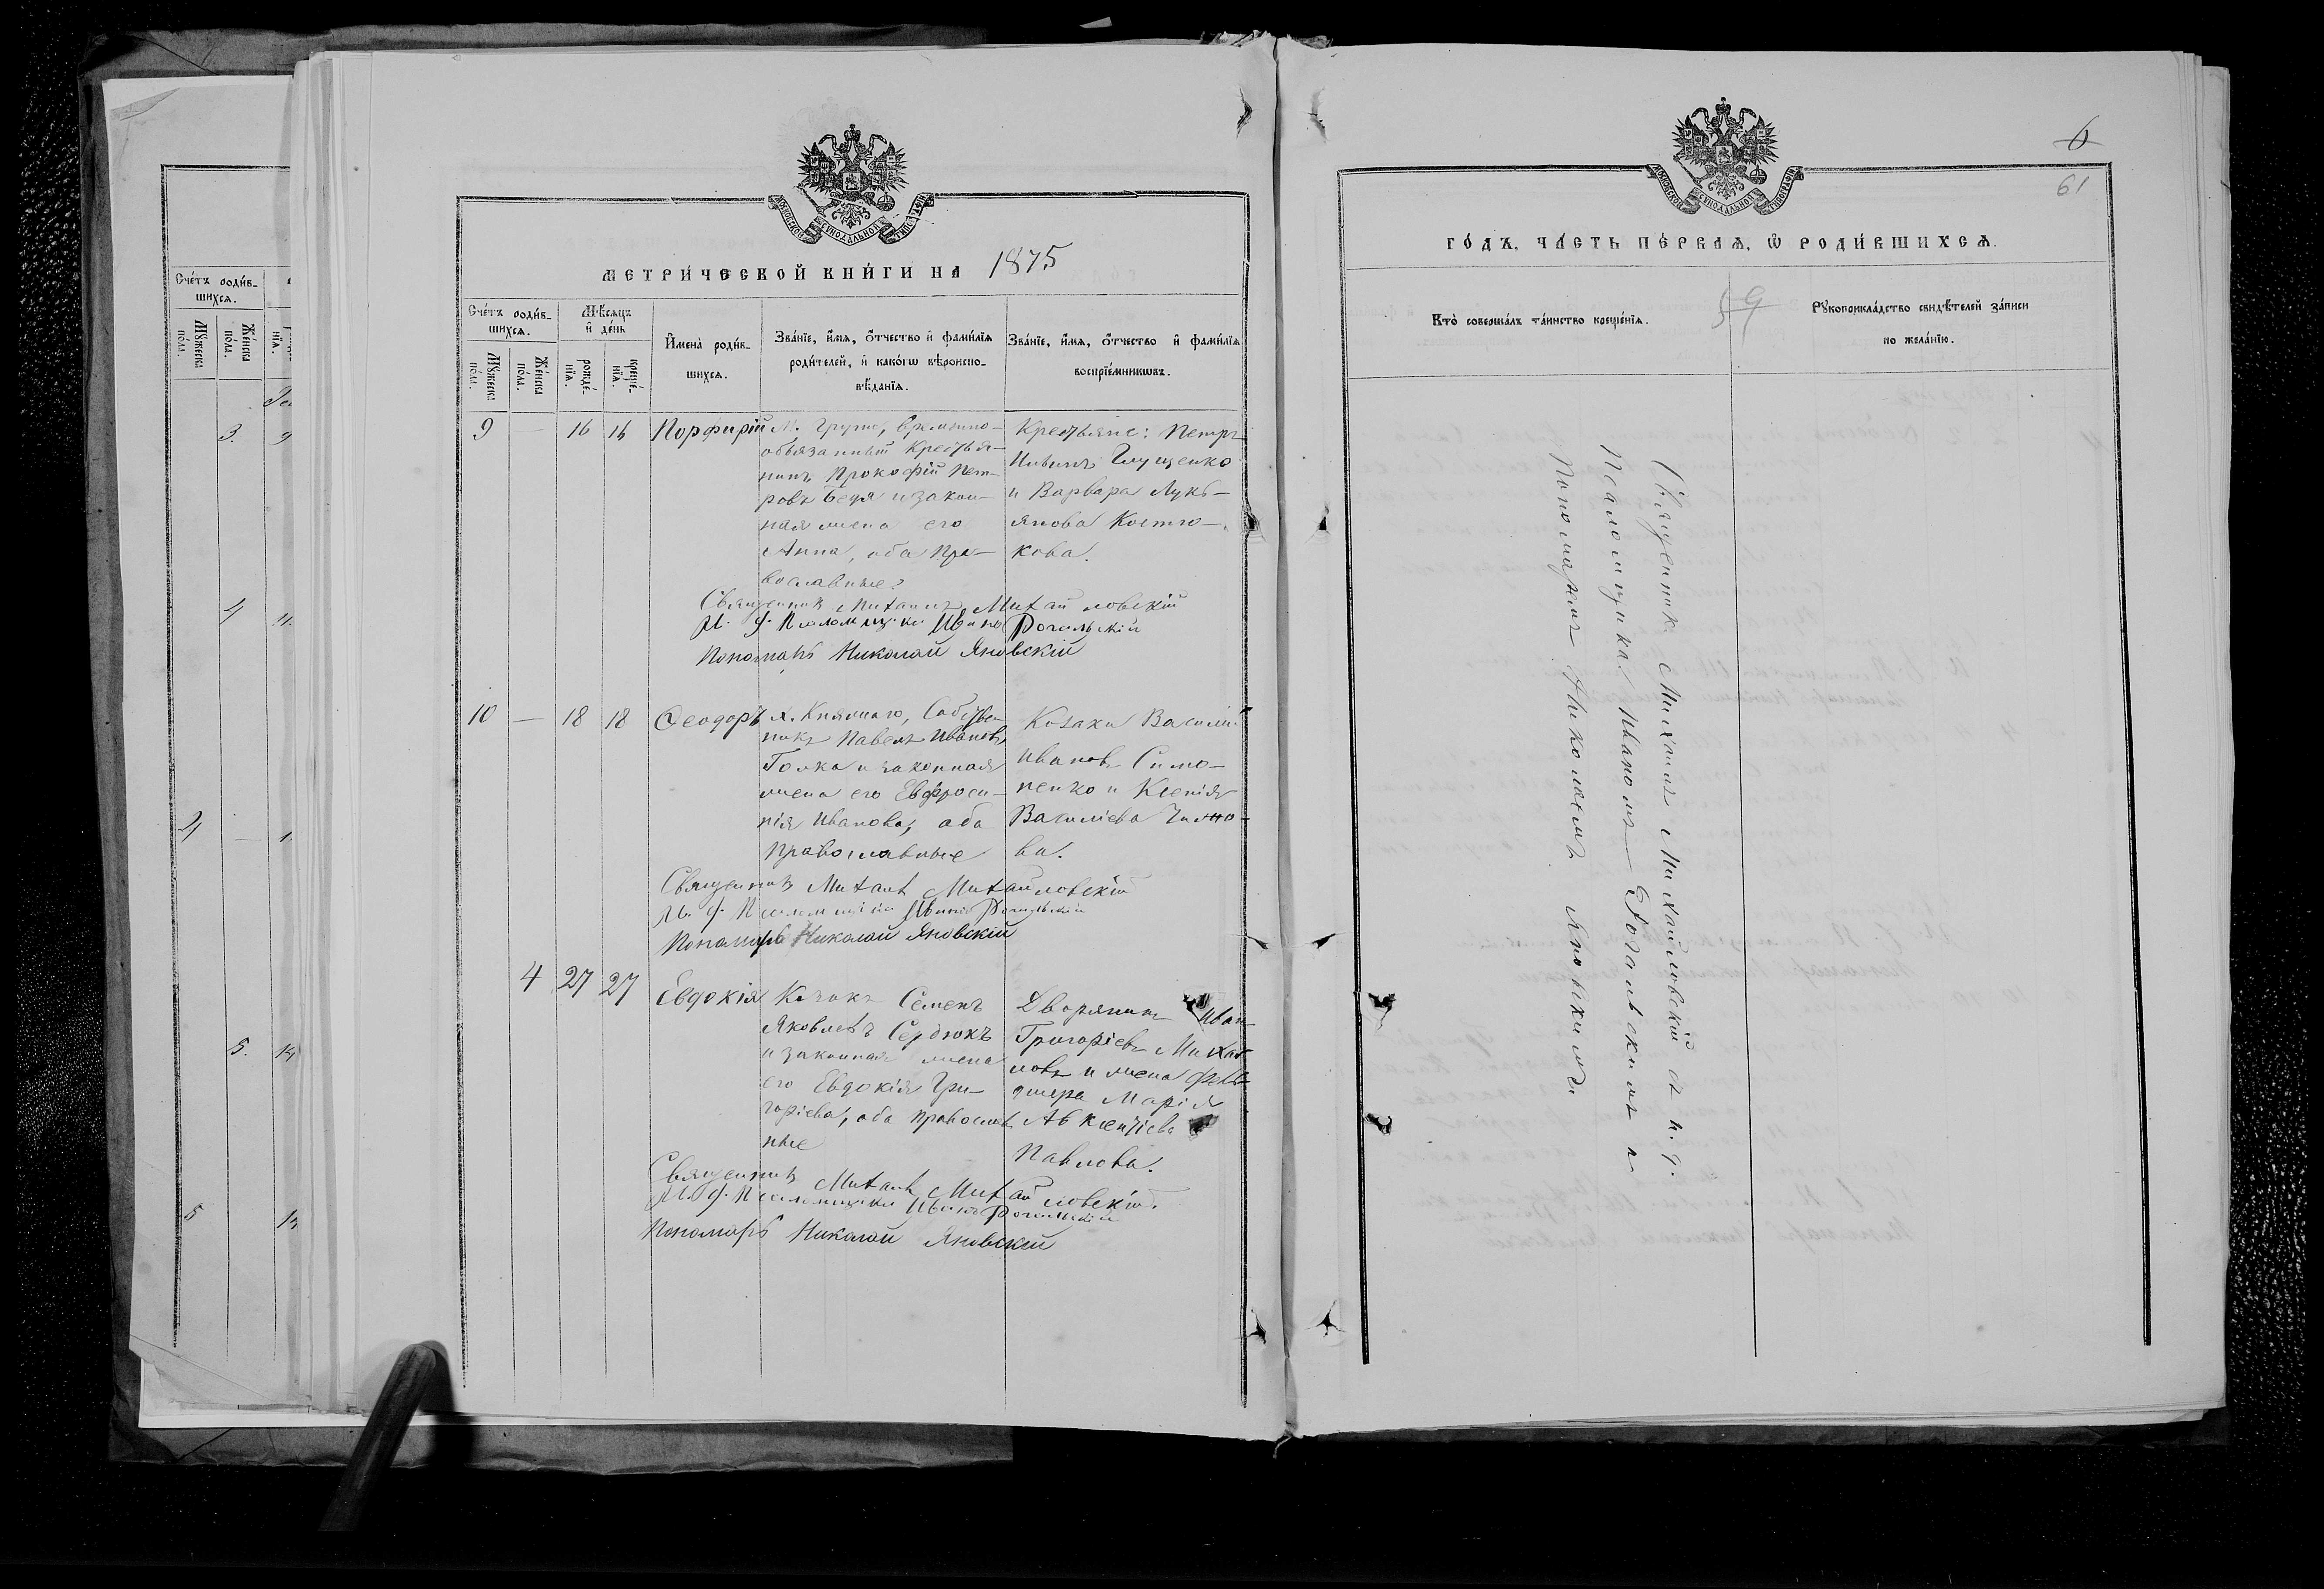 МЕТРИЧЕСКОЙ КНИГИ НА 1875
Счетъ родив-
шихся.
Мужеска
пола.
Женска
пола.
Мѣсяцъ
и день
рожде-
нія.
креще-
нія.
Имена родив-
шихся.
Званіе, имя, отчество и фамилія
родителей, и какогѡ вѣроиспо-
вѣданія.
Званіе, имя, отчество и фамилія
воспріемникѡвъ.
9 — 16 16 Порфирій
обязанный Крестья-
нинъ Прокофій Пет-
ровъ и закон-
ная жена его
Анна, оба пра-
вославные
Крестьяне: Петръ
Глущенко
и Варвара Лукь-
янова Костю-
кова.
Священникъ Михаилъ Михайловскій
И. д. Псаломщика Иванъ Рогальскій
Пономарь Николай Яновскій
10 — 18 18 Ѳеодоръ
х. Княжаго, Собствен-
никъ Павелъ Ивановъ
Голка и законная
жена его Евфроси-
нія Иванова, оба
православные
Козаки Василій
Ивановъ Симо-
ненко и Ксенія
Василіева
ва.
Священникъ Михаилъ Михайловскій
И. д. Псаломщика Иванъ Рогальскій
Пономарь Николай Яновскій
4 27 27 Евдокія
Козакъ Семенъ
Яковлевъ Сердюкъ
и законная жена
его Евдокія Гри-
горіева, оба православ-
ные
Дворянинъ Иванъ
Григоріевъ Михай-
ловъ и жена фель-
дшера Марія
Авксентіева
Павлова.
Священникъ Михаилъ Михайловскій.
И. д. Псаломщика Иванъ Рогальскій
Пономарь Николай Яновскій
6
61
ГОДЪ, ЧАСТЬ ПЕРВАЯ, Ѡ РОДИВШИХСЯ.
Кто совершалъ таинство крещенія.
59
Рукоприкладство свидѣтелей записи
по желанію.
Священникъ Михаилъ Михайловскій съ и. д.
Псаломщика Иваномъ Рогальскимъ и
Пономаремъ Николаемъ Яновскимъ
Счетъ родив-
шихся.
Мужеска
пола.
Женска
пола.
3.
4
4 —
5.
5